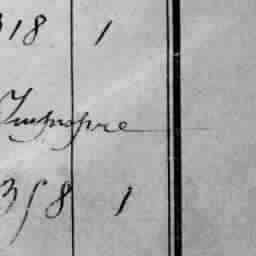 318 1
Impropre
358 1